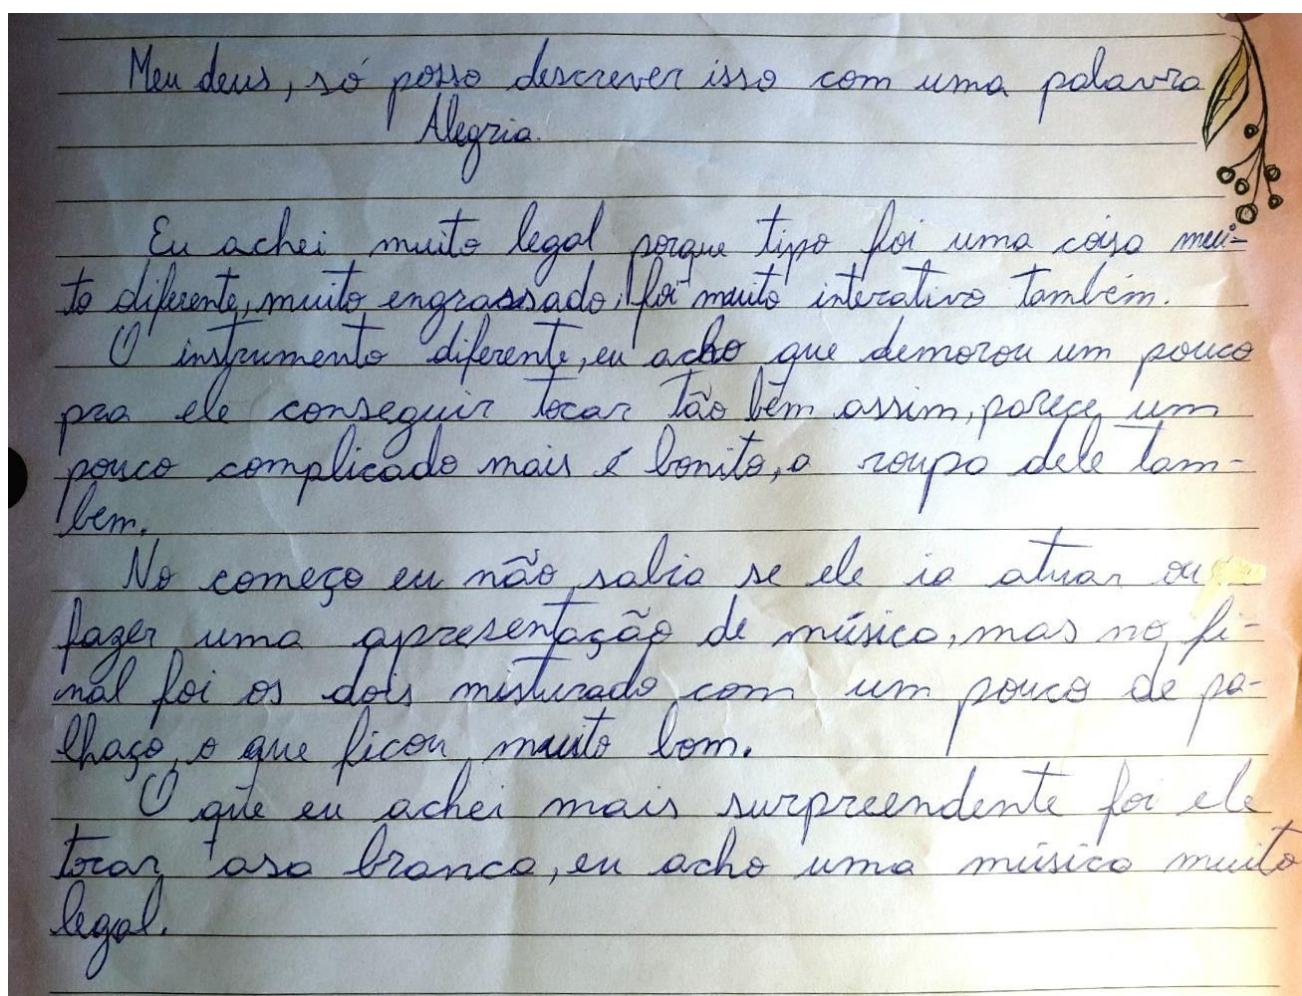 Meu deus, só posso descrever isso com uma palavra
Alegria.
Eu achei muito legal porque tipo foi uma coisa mui-
to diferente, muito engrassado, foi muito interativo também.
O instrumento diferente, eu acho que demorou um pouco
pra ele conseguir tocar tão bêm assim, pareçe um
pouco complicado mais é bonito, a roupa dele tam-
bem.
No começo eu não sabia se ele ia atuar ou
fazer uma apresentação de música, mas no fi-
nal foi os dois misturado com um pouco de pa-
lhaço, o que ficou muito bom.
O que eu achei mais surpreendente foi ele
tocar asa branca, eu acho uma música muito
legal.